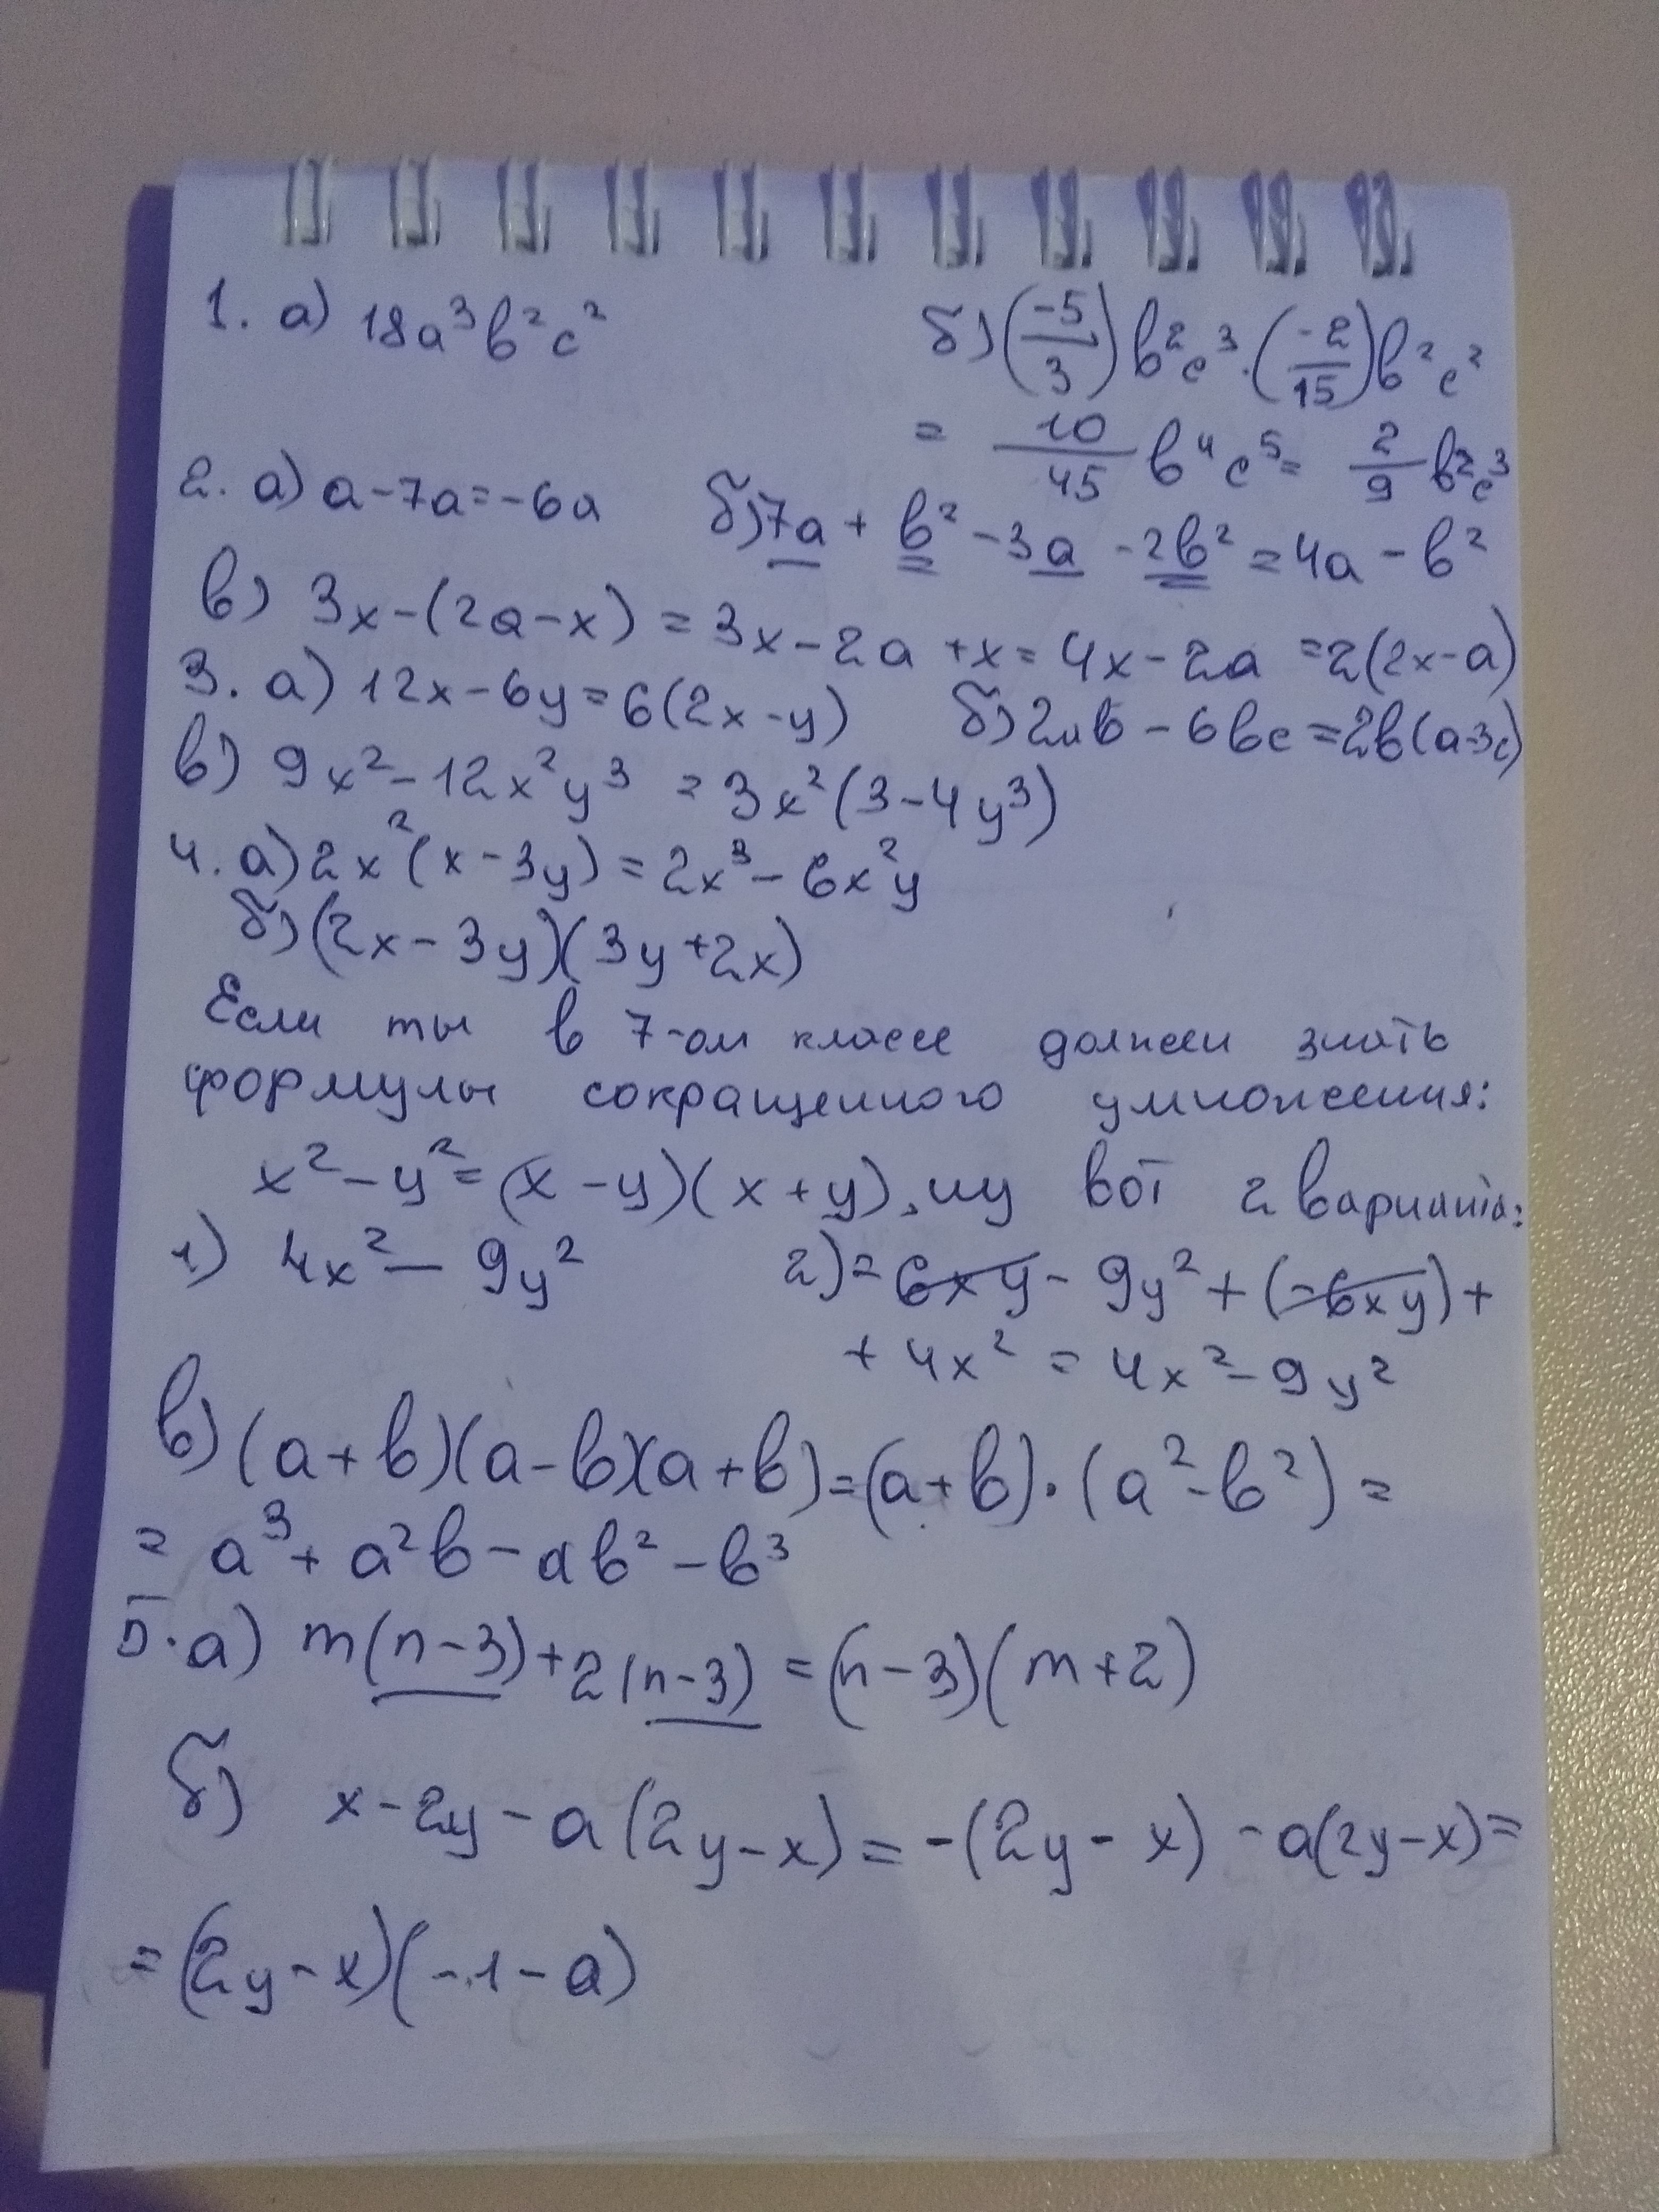 1. а) 18a³b²c² б) (-5/3) b²c³ · (-2/15) b²c²
= 10/45 b⁴c⁵ = 2/9 b²c³
2. а) a-7a=-6a б) 7a + b² -3a -2b² = 4a - b²
в) 3x-(2a-x) = 3x-2a+x = 4x-2a = 2(2x-a)
3. а) 12x-6y=6(2x-y) б) 2ab - 6bc = 2b(a-3c)
в) 9x²-12x²y³ = 3x²(3-4y³)
4. а) 2x²(x-3y) = 2x³ - 6x²y
б) (2x-3y)(3y+2x)
Если ты в 7-ом классе должен знать
формулы сокращенного умножения:
x²-y²=(x-y)(x+y), ну вот 2 варианта:
1) 4x² - 9y² 2) = 6xy - 9y² + (-6xy) +
+ 4x² = 4x² - 9y²
в) (a+b)(a-b)(a+b) = (a+b)·(a²-b²) =
= a³ + a²b - ab² - b³
5. а) m(n-3)+2(n-3) = (n-3)(m+2)
б) x-2y-a(2y-x) = -(2y-x) -a(2y-x) =
= (2y-x)(-1-a)